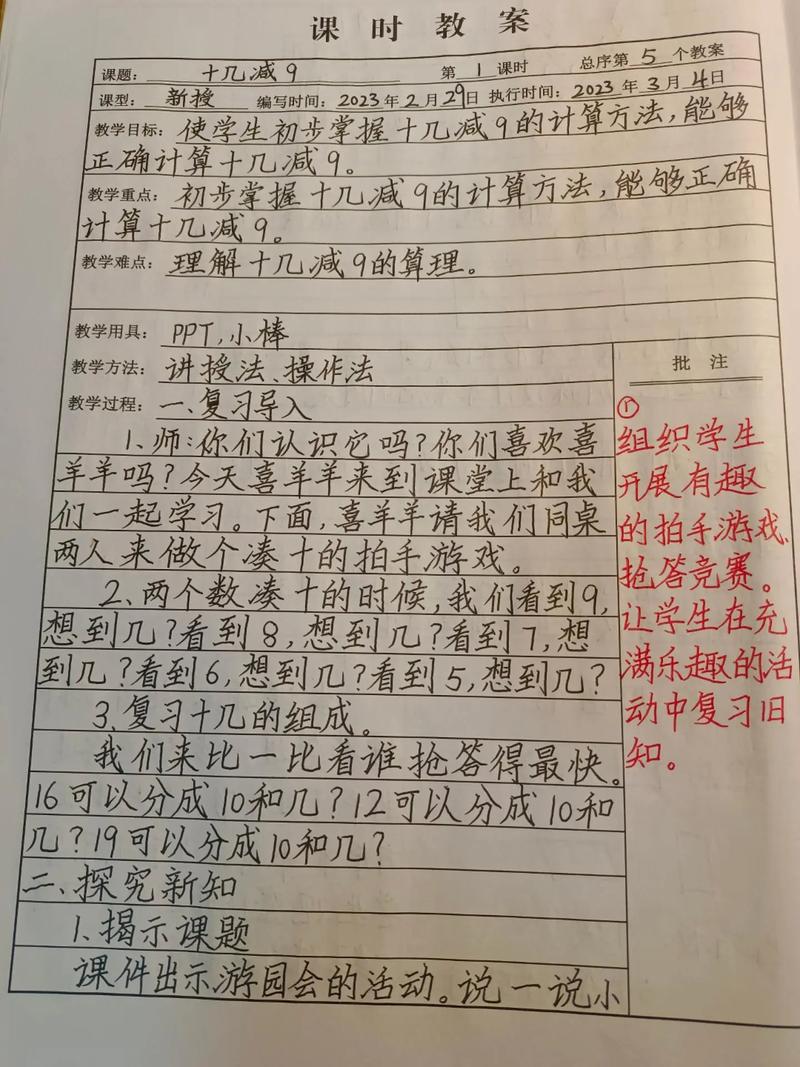 课时教案
课题： 十几减9 第 1 课时 总序第 5 个教案
课型： 新授 编写时间：2023年2月29日 执行时间：2023年3月4日
教学目标：使学生初步掌握十几减9的计算方法，能够
正确计算十几减9。
教学重点：初步掌握十几减9的计算方法，能够正确
计算十几减9。
教学难点：理解十几减9的算理。
教学用具：PPT，小棒
教学方法：讲授法、操作法
批 注
教学过程：一、复习导入
1、师：你们认识它吗？你们喜欢喜
羊羊吗？今天喜羊羊来到课堂上和我
们一起学习。下面，喜羊羊请我们同桌
两人来做个凑十的拍手游戏。
2、两个数凑十的时候，我们看到9，
想到几？看到8，想到几？看到7，想
到几？看到6，想到几？看到5，想到几？
3、复习十几的组成。
我们来比一比看谁抢答得最快。
16可以分成10和几？12可以分成10和
几？19可以分成10和几？
二、探究新知
1、揭示课题
课件出示游园会的活动。说一说小
①
组织学生
开展有趣
的拍手游戏、
抢答竞赛。
让学生在充
满乐趣的活
动中复习旧
知。